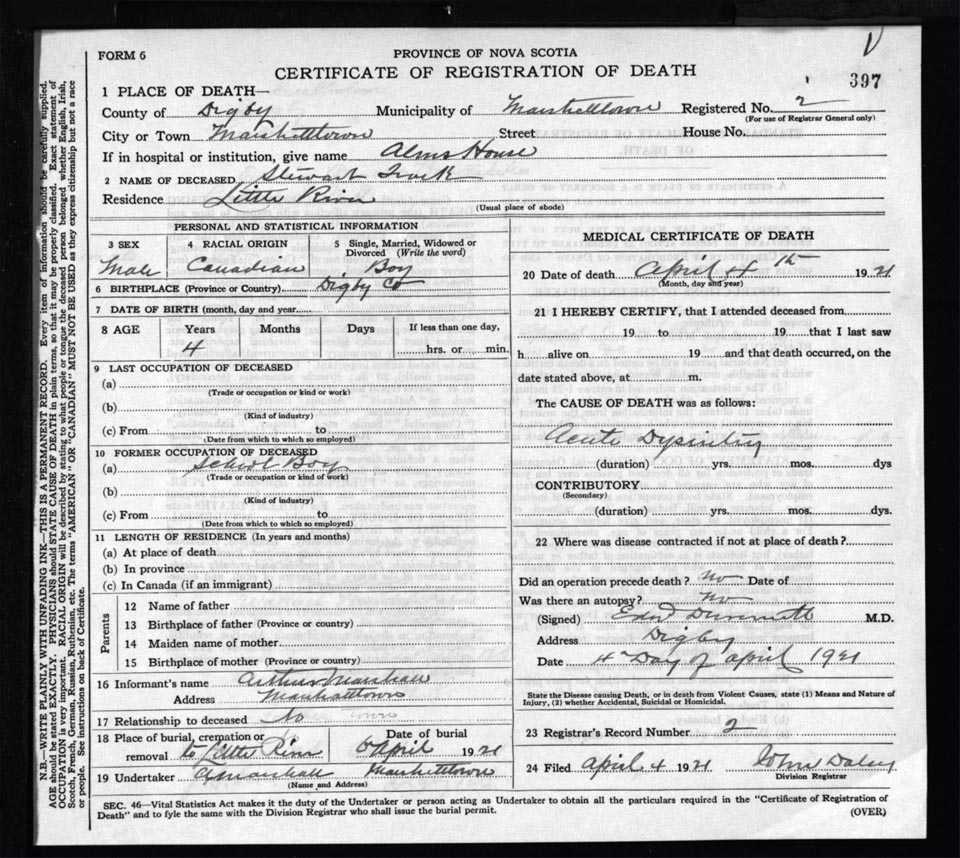 V
FORM 6
PROVINCE OF NOVA SCOTIA
397
CERTIFICATE OF REGISTRATION OF DEATH
1 PLACE OF DEATH—
County of Digby Municipality of Marshalltown Registered No. 2
(For use of Registrar General only)
City or Town Marshalltown Street House No.
If in hospital or institution, give name Alms House
2 NAME OF DECEASED Stewart
Residence Little River
(Usual place of abode)
PERSONAL AND STATISTICAL INFORMATION
3 SEX 4 RACIAL ORIGIN 5 Single, Married, Widowed or Divorced (Write the word)
Male Canadian Boy
6 BIRTHPLACE (Province or Country) Digby Co
7 DATE OF BIRTH (month, day and year)
8 AGE Years Months Days If less than one day,
4 hrs. or min.
9 LAST OCCUPATION OF DECEASED
(a)
(Trade or occupation or kind or work)
(b)
(Kind of industry)
(c) From to
(Date from which to which so employed)
10 FORMER OCCUPATION OF DECEASED
(a) School Boy
(Trade or occupation or kind of work)
(b)
(Kind of industry)
(c) From to
(Date from which to which so employed)
11 LENGTH OF RESIDENCE (In years and months)
(a) At place of death
(b) In province
(c) In Canada (if an immigrant)
Parents
12 Name of father
13 Birthplace of father (Province or country)
14 Maiden name of mother
15 Birthplace of mother (Province or country)
16 Informant's name Arthur Marshall
Address Marshalltown
17 Relationship to deceased No
18 Place of burial, cremation or removal Date of burial
to Little River April 1921
19 Undertaker A Marshall Marshalltown
(Name and Address)
MEDICAL CERTIFICATE OF DEATH
20 Date of death April 4th 1921
(Month, day and year)
21 I HEREBY CERTIFY, that I attended deceased from
19 to 19 that I last saw
h alive on 19 and that death occurred, on the
date stated above, at m.
The CAUSE OF DEATH was as follows:
Acute Dysintry
(duration) yrs. mos. dys
CONTRIBUTORY
(Secondary)
(duration) yrs. mos. dys.
22 Where was disease contracted if not at place of death?
Did an operation precede death? No Date of
Was there an autopsy? No
(Signed) Edw M.D.
Address Digby
Date 4 Day of April 1921
State the Disease causing Death, or in death from Violent Causes, state (1) Means and Nature of
Injury, (2) whether Accidental, Suicidal or Homicidal.
23 Registrar's Record Number 2
24 Filed April 4 1921 John Daley
Division Registrar
SEC. 46—Vital Statistics Act makes it the duty of the Undertaker or person acting as Undertaker to obtain all the particulars required in the "Certificate of Registration of
Death" and to fyle the same with the Division Registrar who shall issue the burial permit.
(OVER)
N.B.—WRITE PLAINLY WITH UNFADING INK—THIS IS A PERMANENT RECORD. Every item of information should be carefully supplied.
AGE should be stated EXACTLY. PHYSICIANS should STATE CAUSE OF DEATH in plain terms, so that it may be properly classified. Exact statement of
OCCUPATION is very important. RACIAL ORIGIN will be described by stating to what people or tongue the deceased person belonged whether English, Irish,
Scotch, French, German, Russian, Ruthenian, etc. The terms "AMERICAN" OR "CANADIAN" MUST NOT BE USED as they express citizenship but not a race
or people. See instructions on back of Certificate.